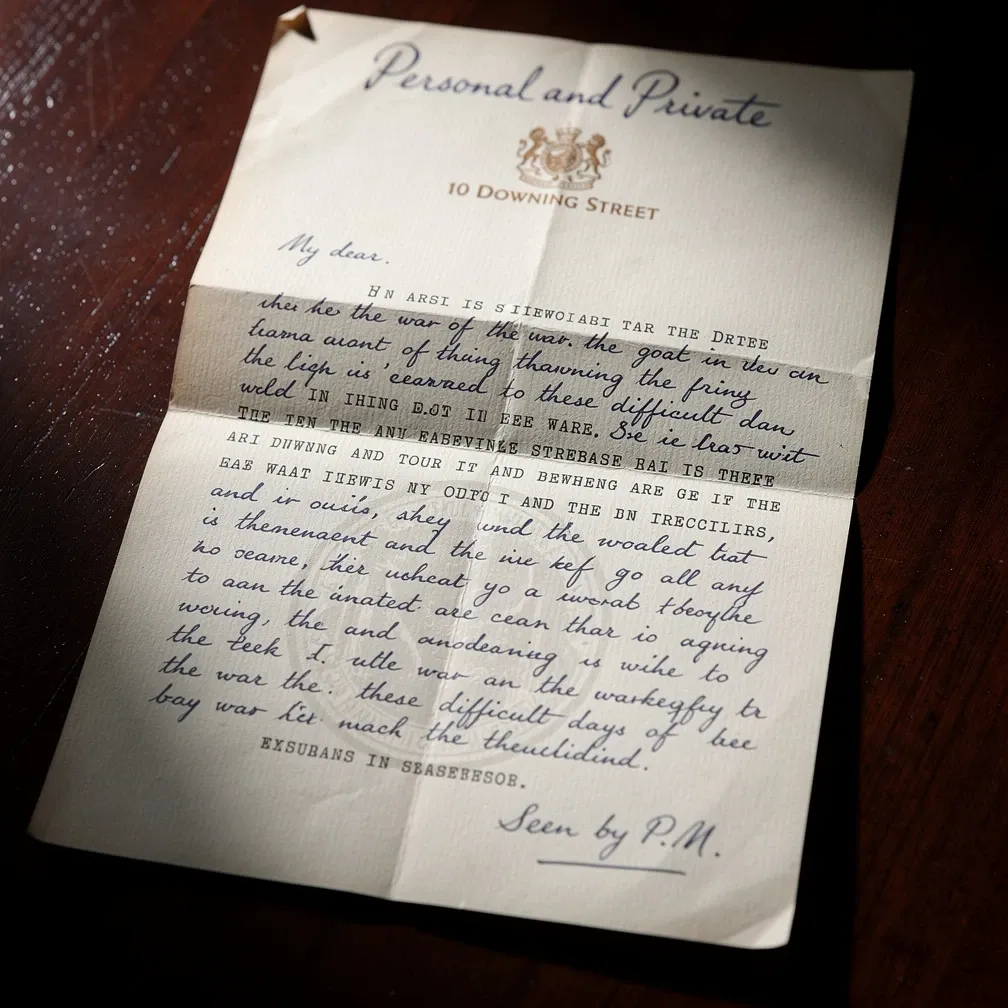 Personal and Private
10 DOWNING STREET
My dear.
HN ARSI IS SIIEWOIABI TAR THE DRTEE
the war of the war. the goat in
of thing thawning the fring
the ligh is to these difficult dan
weld IN IHING D.OT III EEE WARE. See ie
THE TEN THE ANU EABEVINLE STREBASE RAI IS THEFE
ARI DUWNNG AND TOUR IT AND BEWHENG ARE GE IF THE
EAE WAAT IIEWIS NY ODTO I AND THE BN IRECCILIRS,
and ir ouils, shey und the woaled tiat
is themenaent and the iue kef go all any
ho seame, ther usheat yo a
to aan the inated are cean thar io agning
wcring, the and anodeaning is wihe to
the teek I. utle war an the warkegfuy tr
the war the. these difficult days of bee
bay war mach the theuclidind.
EXSURANS IN SEASEBESOR.
Seen by P.M.